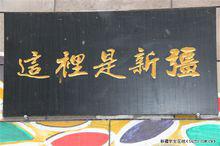 這裡是新疆